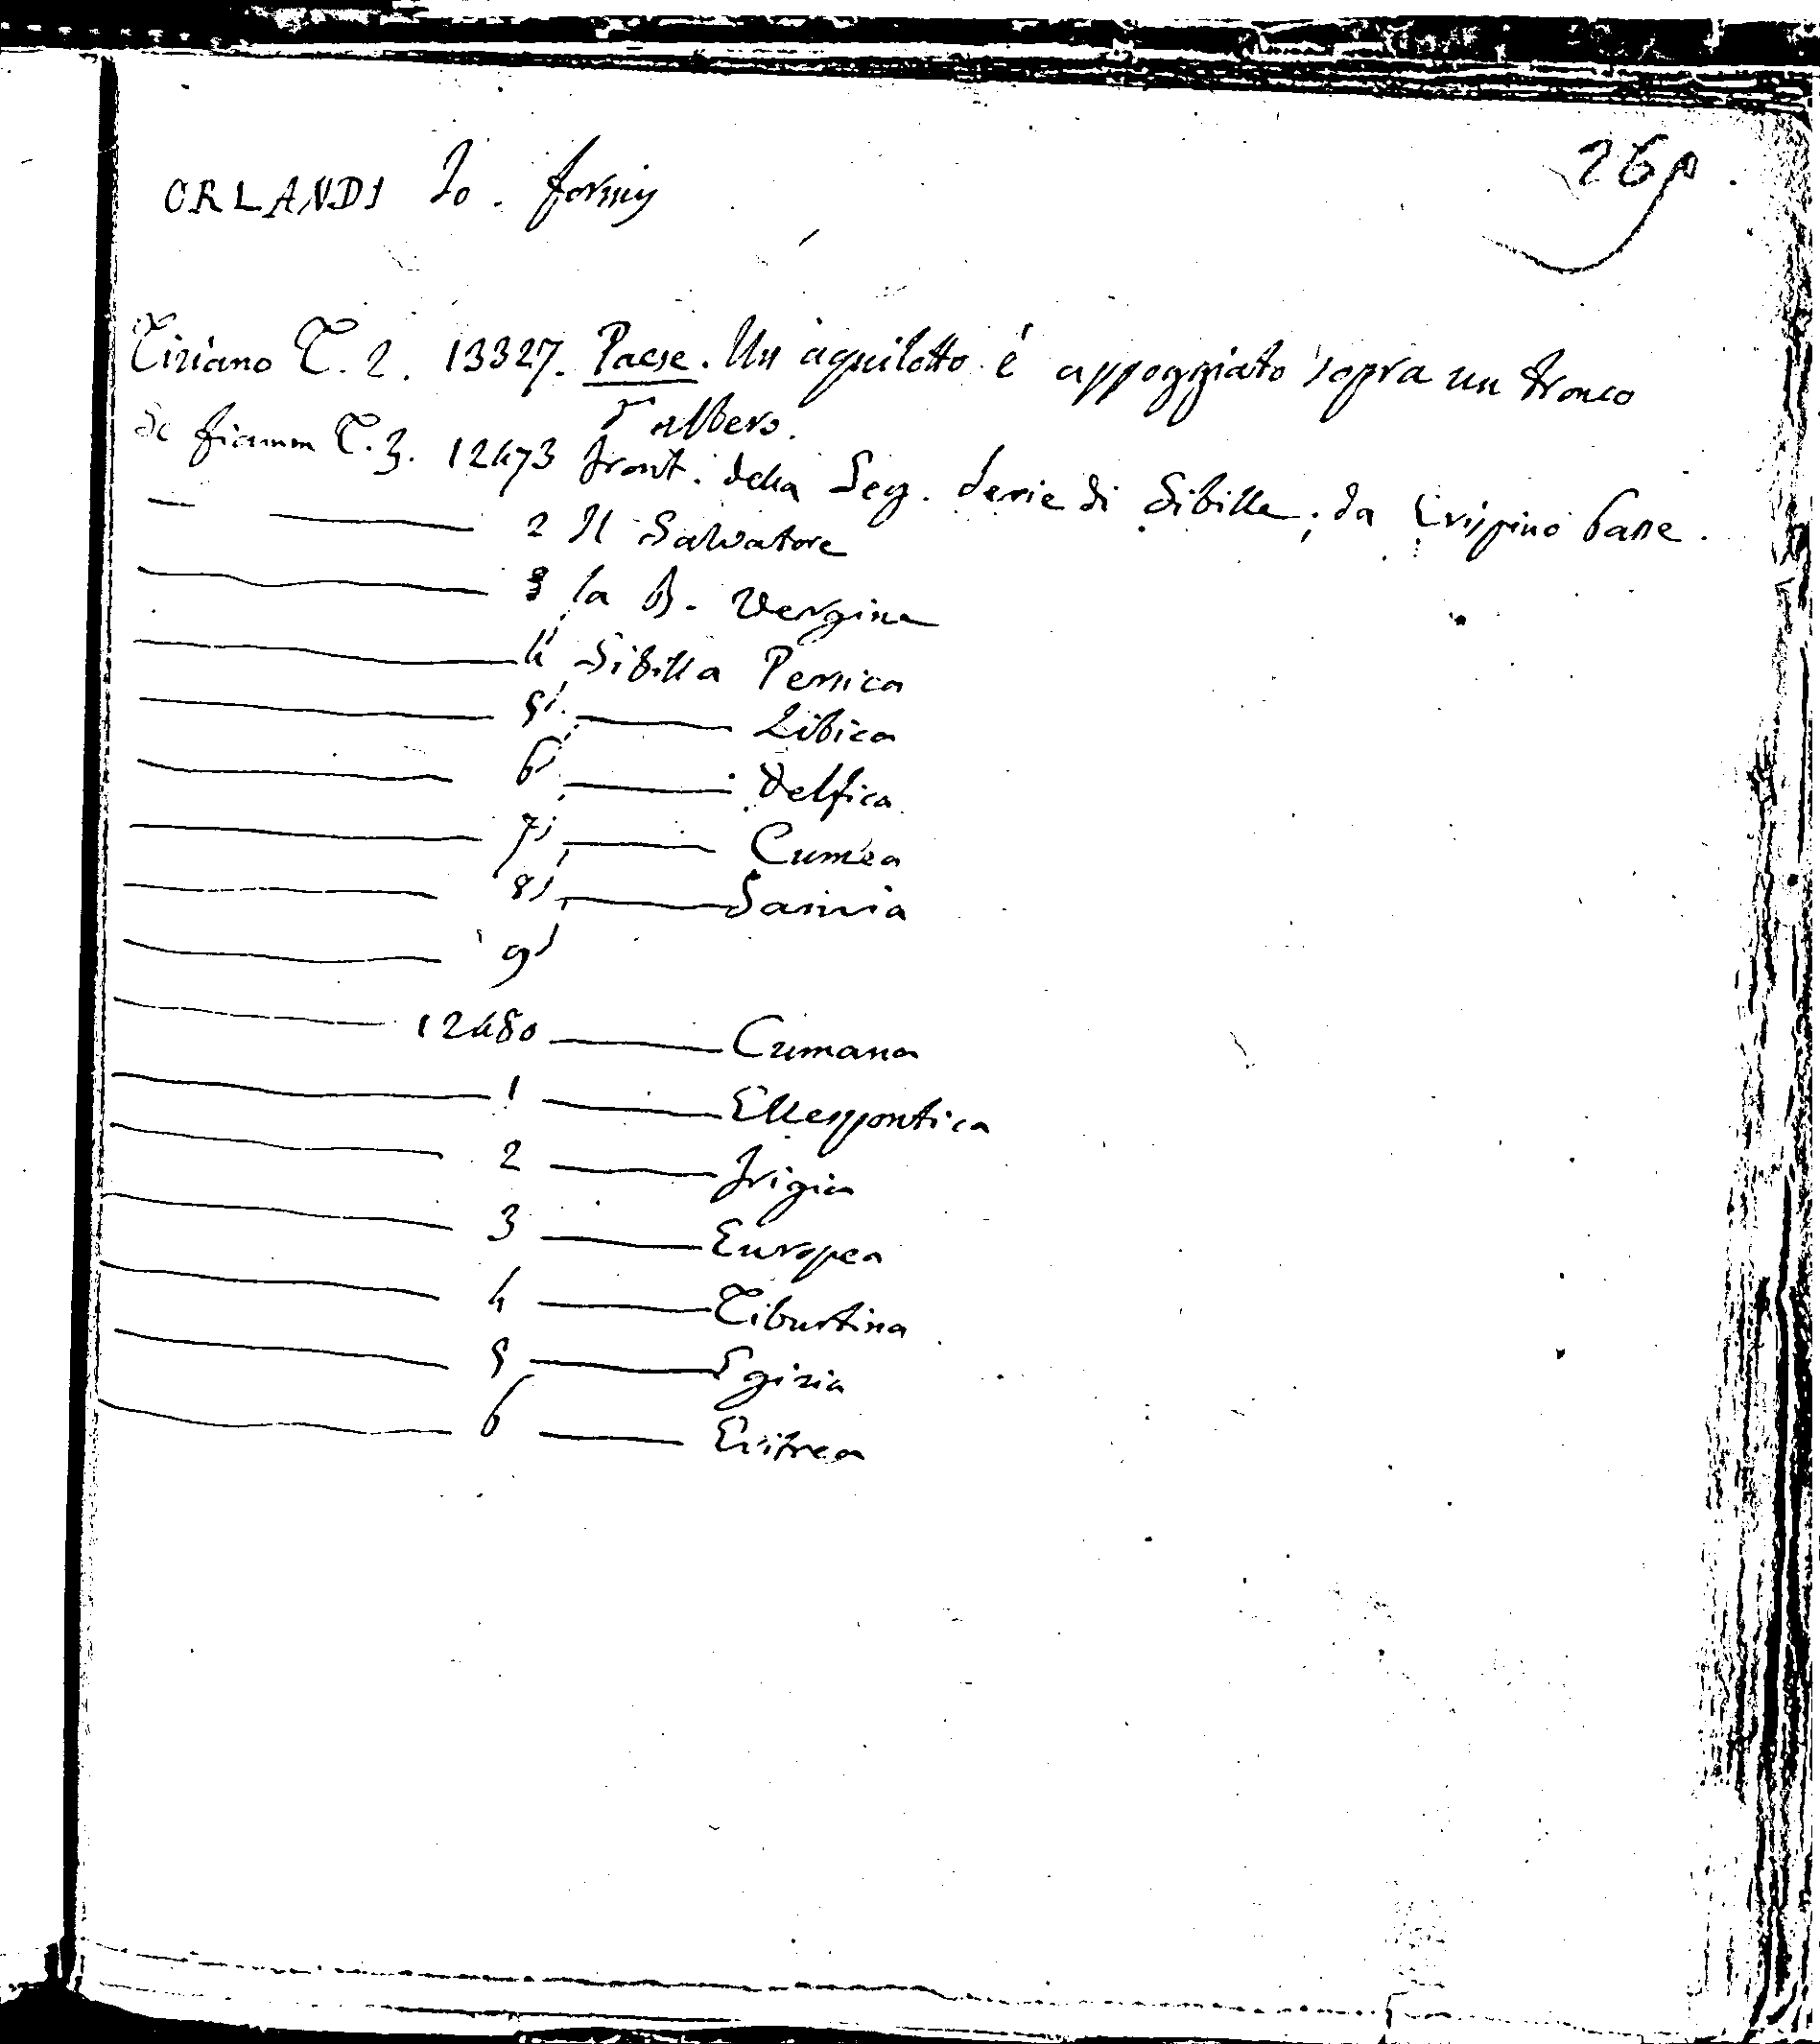 ORLANDI Io. formis
26p.
Tiziano T. 2. 13327. Paese. Un aquilotto è appoggiato sopra un tronco
d'albero.
T. 3. 12473 front. della Seg. Serie di Sibille; da Crispino Passe.
2 Il Salvatore
3 la B. Vergine
4 Sibilla Persica
5 Libica
6 Delfica
7 Cumea
8 Samia
9
12480 Cumana
1 Ellespontica
2 Frigia
3 Europea
4 Tiburtina
5 Egizia
6 Eritrea